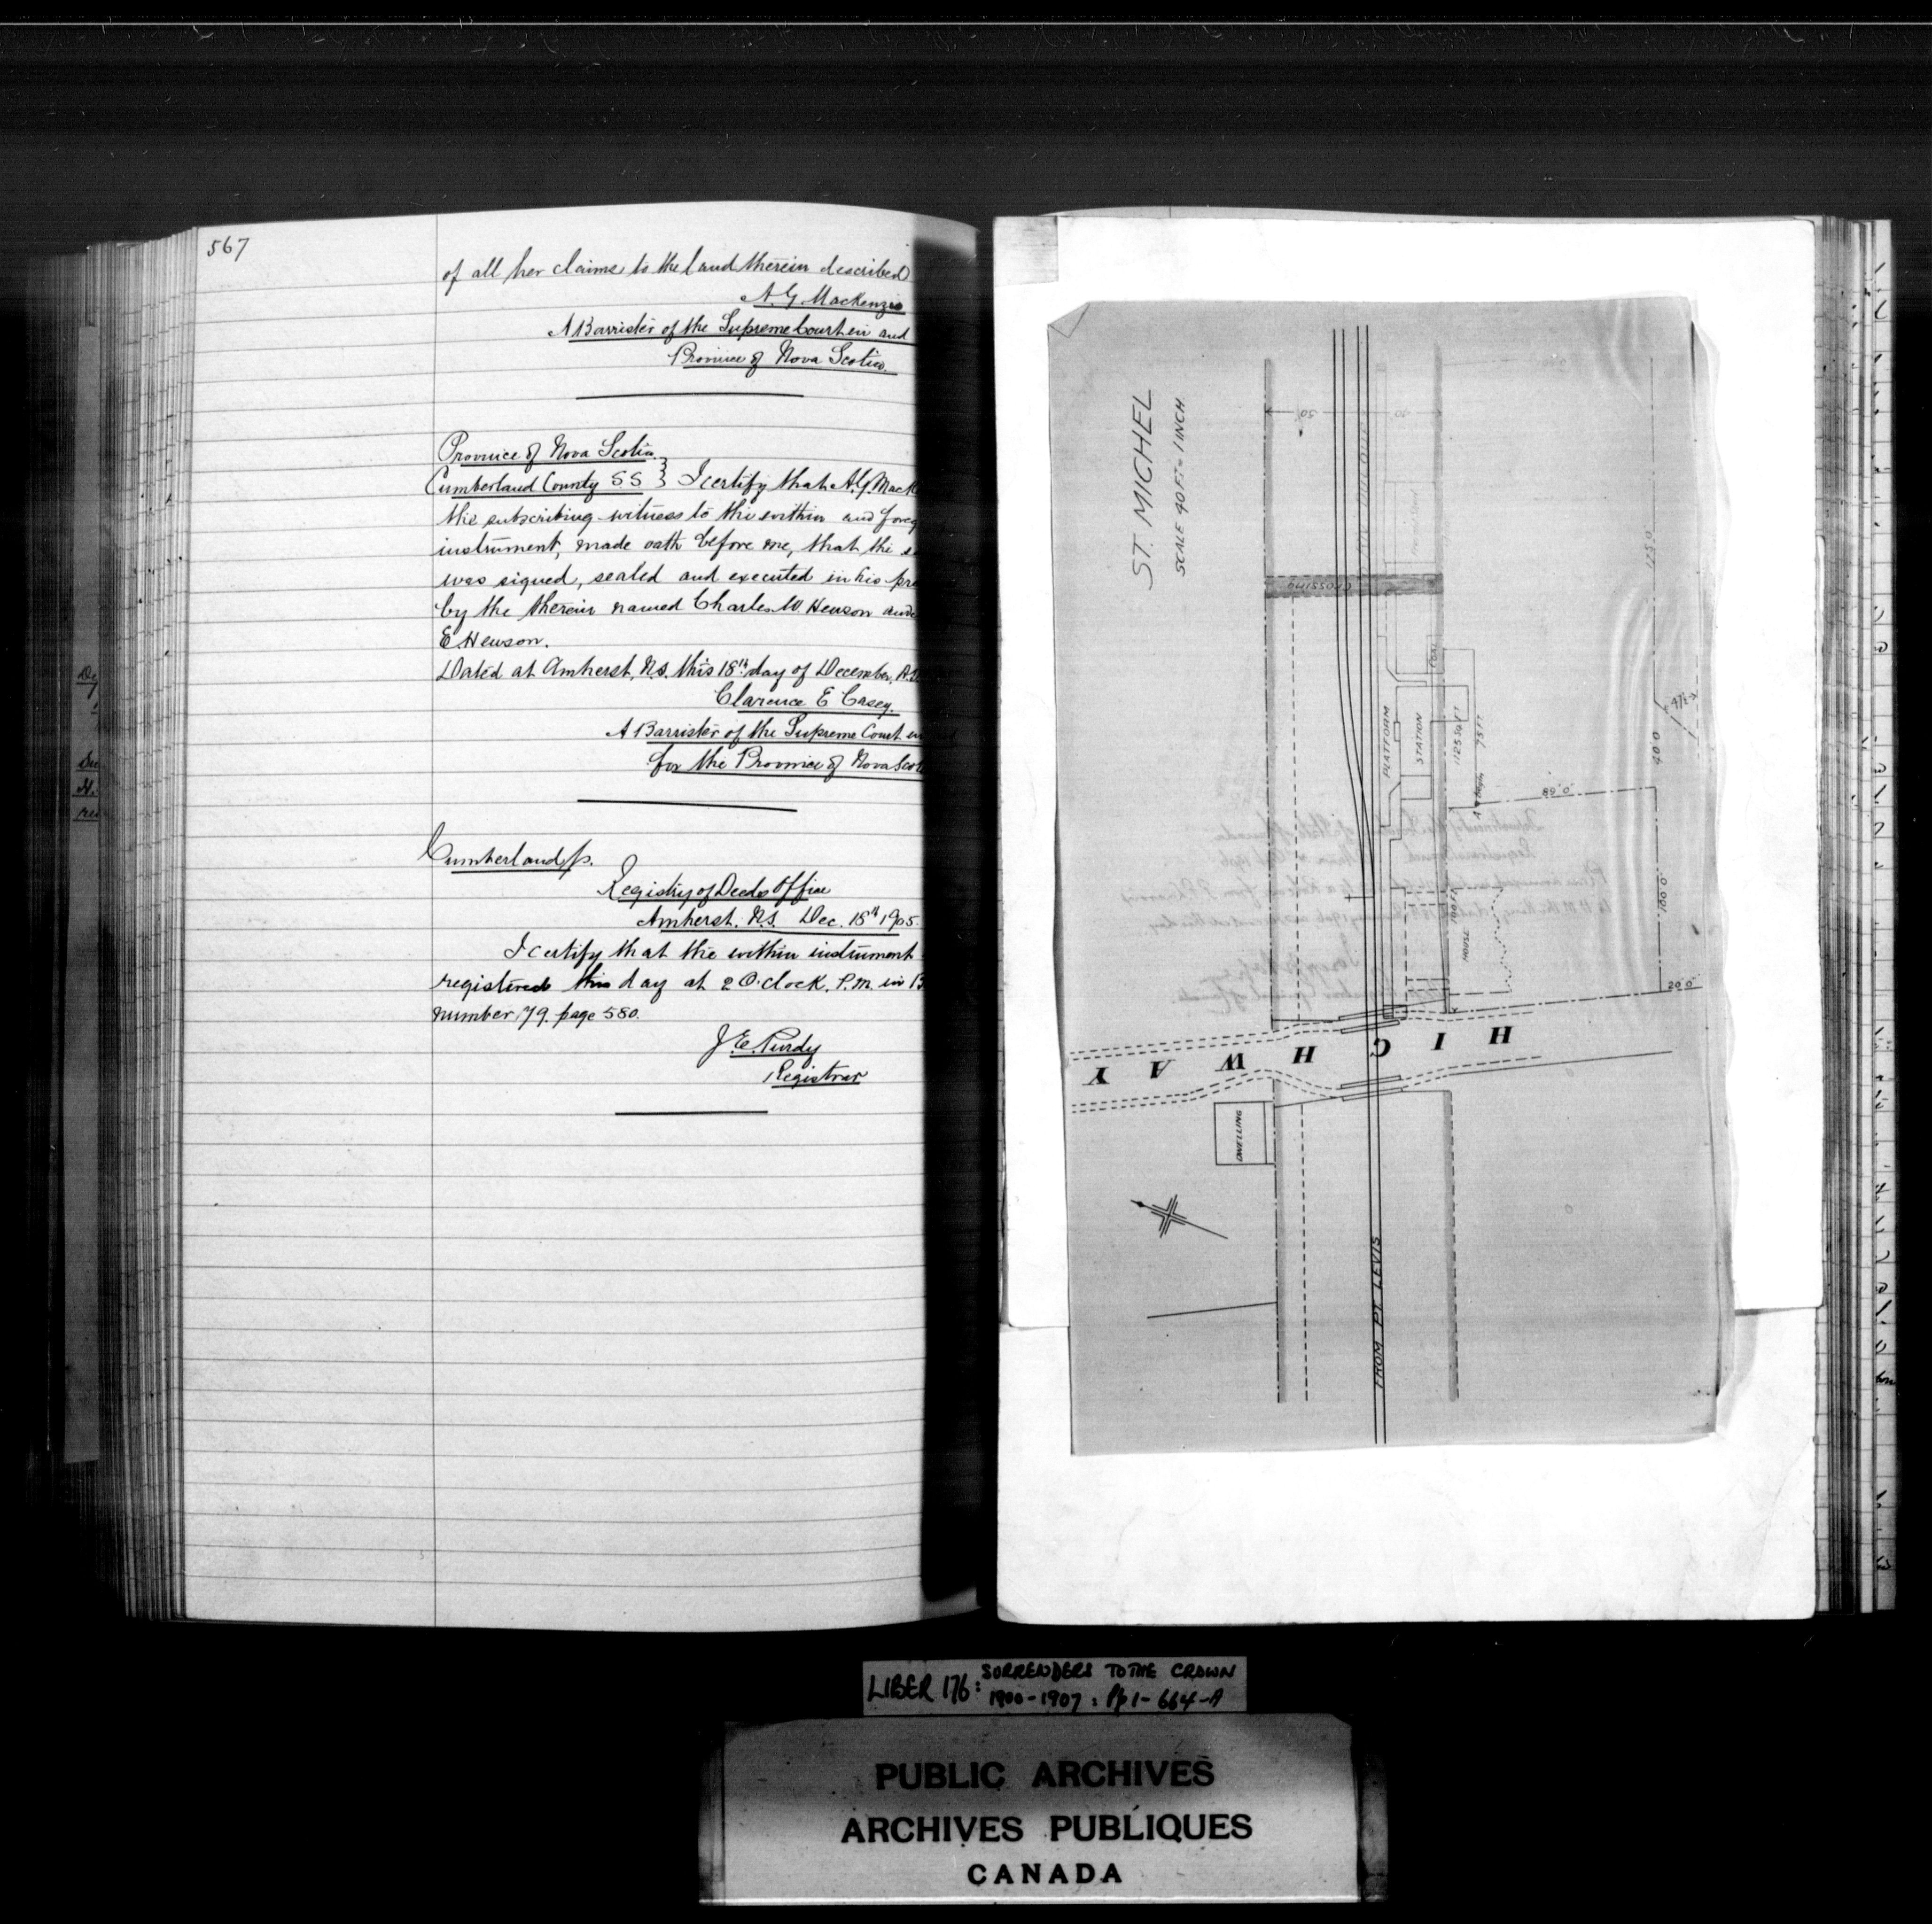 567
of all her claims to the land therein described
A. G. Mackenzie
A Barrister of the Supreme Court in and
Province of Nova Scotia.
Province of Nova Scotia
Cumberland County SS } I certify that A. G. Mack
the subscribing witness to the within and foreg
instrument, made oath before me, that the s
was signed, sealed and executed in his pre
by the therein named Charles W. Hewson and
E. Hewson.
Dated at Amherst, N.S. this 18th day of December, A.D.
Clarence E Casey.
A Barrister of the Supreme Court in
for the Province of Nova Scot
Cumberland ss.
Registry of Deeds Office
Amherst. N.S. Dec. 18th 1905.
I certify that the within instrument
registered this day at 2 O.clock. P.M. in B
number 79. page 580.
J. E. Purdy
Registrar
ST. MICHEL
SCALE 40 FT = 1 INCH
50'
CROSSING
PLATFORM
STATION
1125 SQ FT
75 FT
125' 0"
47½
40' 0"
89' 0"
100' 0"
100 FT
HOUSE
20' 0"
HIGHWAY
DWELLING
FROM PT. LEVIS
LIBER 176: SURRENDERS TO THE CROWN
1900-1907: Pp 1-664-A
PUBLIC ARCHIVES
ARCHIVES PUBLIQUES
CANADA